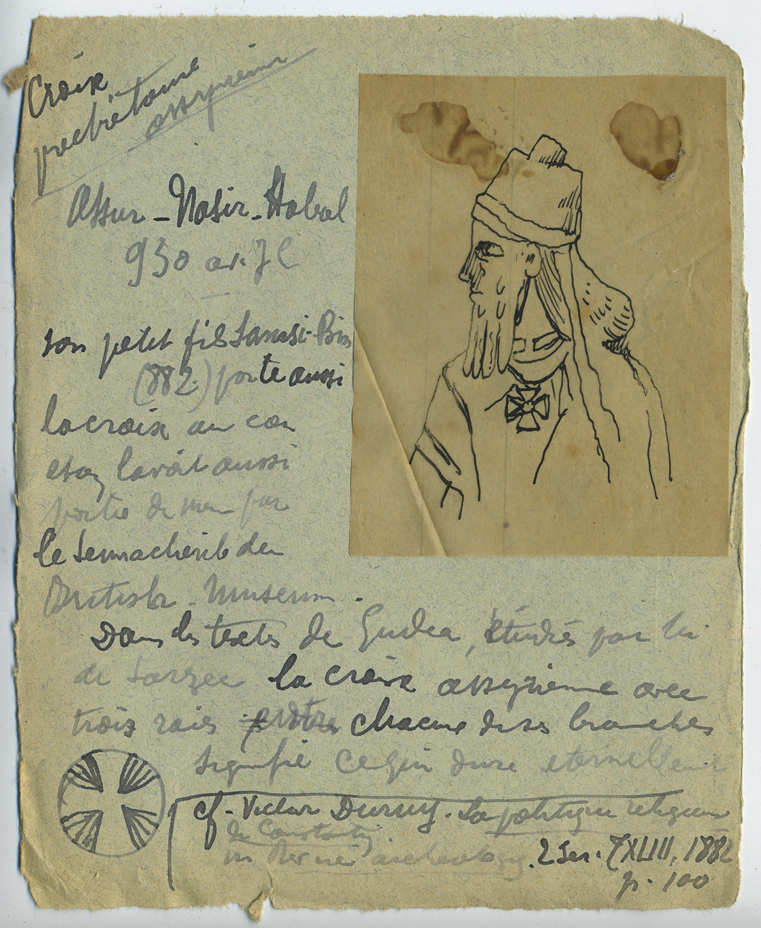 Croix
prechrétienne
assyrienne
Assur-Nasir-Habal
930 av. JC
son petit fils Samsi-Bin
(882.) porte aussi
la croix au cou
lavait aussi
portée de meme par
le Sennacherib du
British-Museum.
Dans les textes de Gudea, étudiés par
de Sarzec la croix assyrienne avec
trois raies entre chacune de ses branches
signifie ce qui dure eternellement
cf. Victor Duruy. La politique religieuse
de Constantin
in Revue archeolog. 2 Ser. TXLIII, 1882
p. 100